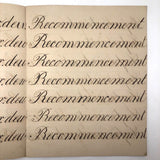 x.deux Recommencement
x.deux Recommencement
x.deux Recommencement
x.deux Recommencement
x.deux Recommencement
x.deux Recommencement
x.deux Recommencement